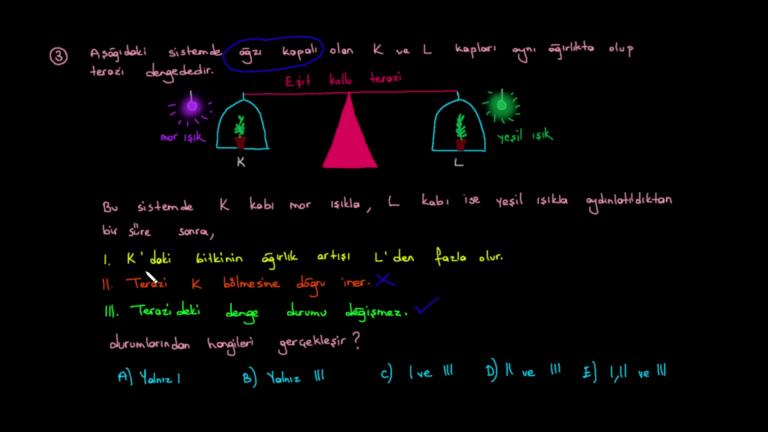 ③ Aşağıdaki sistemde ağzı kapalı olan K ve L kapları aynı ağırlıkta olup
terazi dengededir.
Eşit kollu terazi
mor ışık
yeşil ışık
K
L
Bu sistemde K kabı mor ışıkla, L kabı ise yeşil ışıkla aydınlatıldıktan
bir süre sonra,
I. K'daki bitkinin ağırlık artışı L'den fazla olur.
II. Terazi K bölmesine doğru iner.
III. Terazideki denge durumu değişmez.
durumlarından hangileri gerçekleşir?
A) Yalnız I B) Yalnız III C) I ve III D) II ve III E) I, II ve III